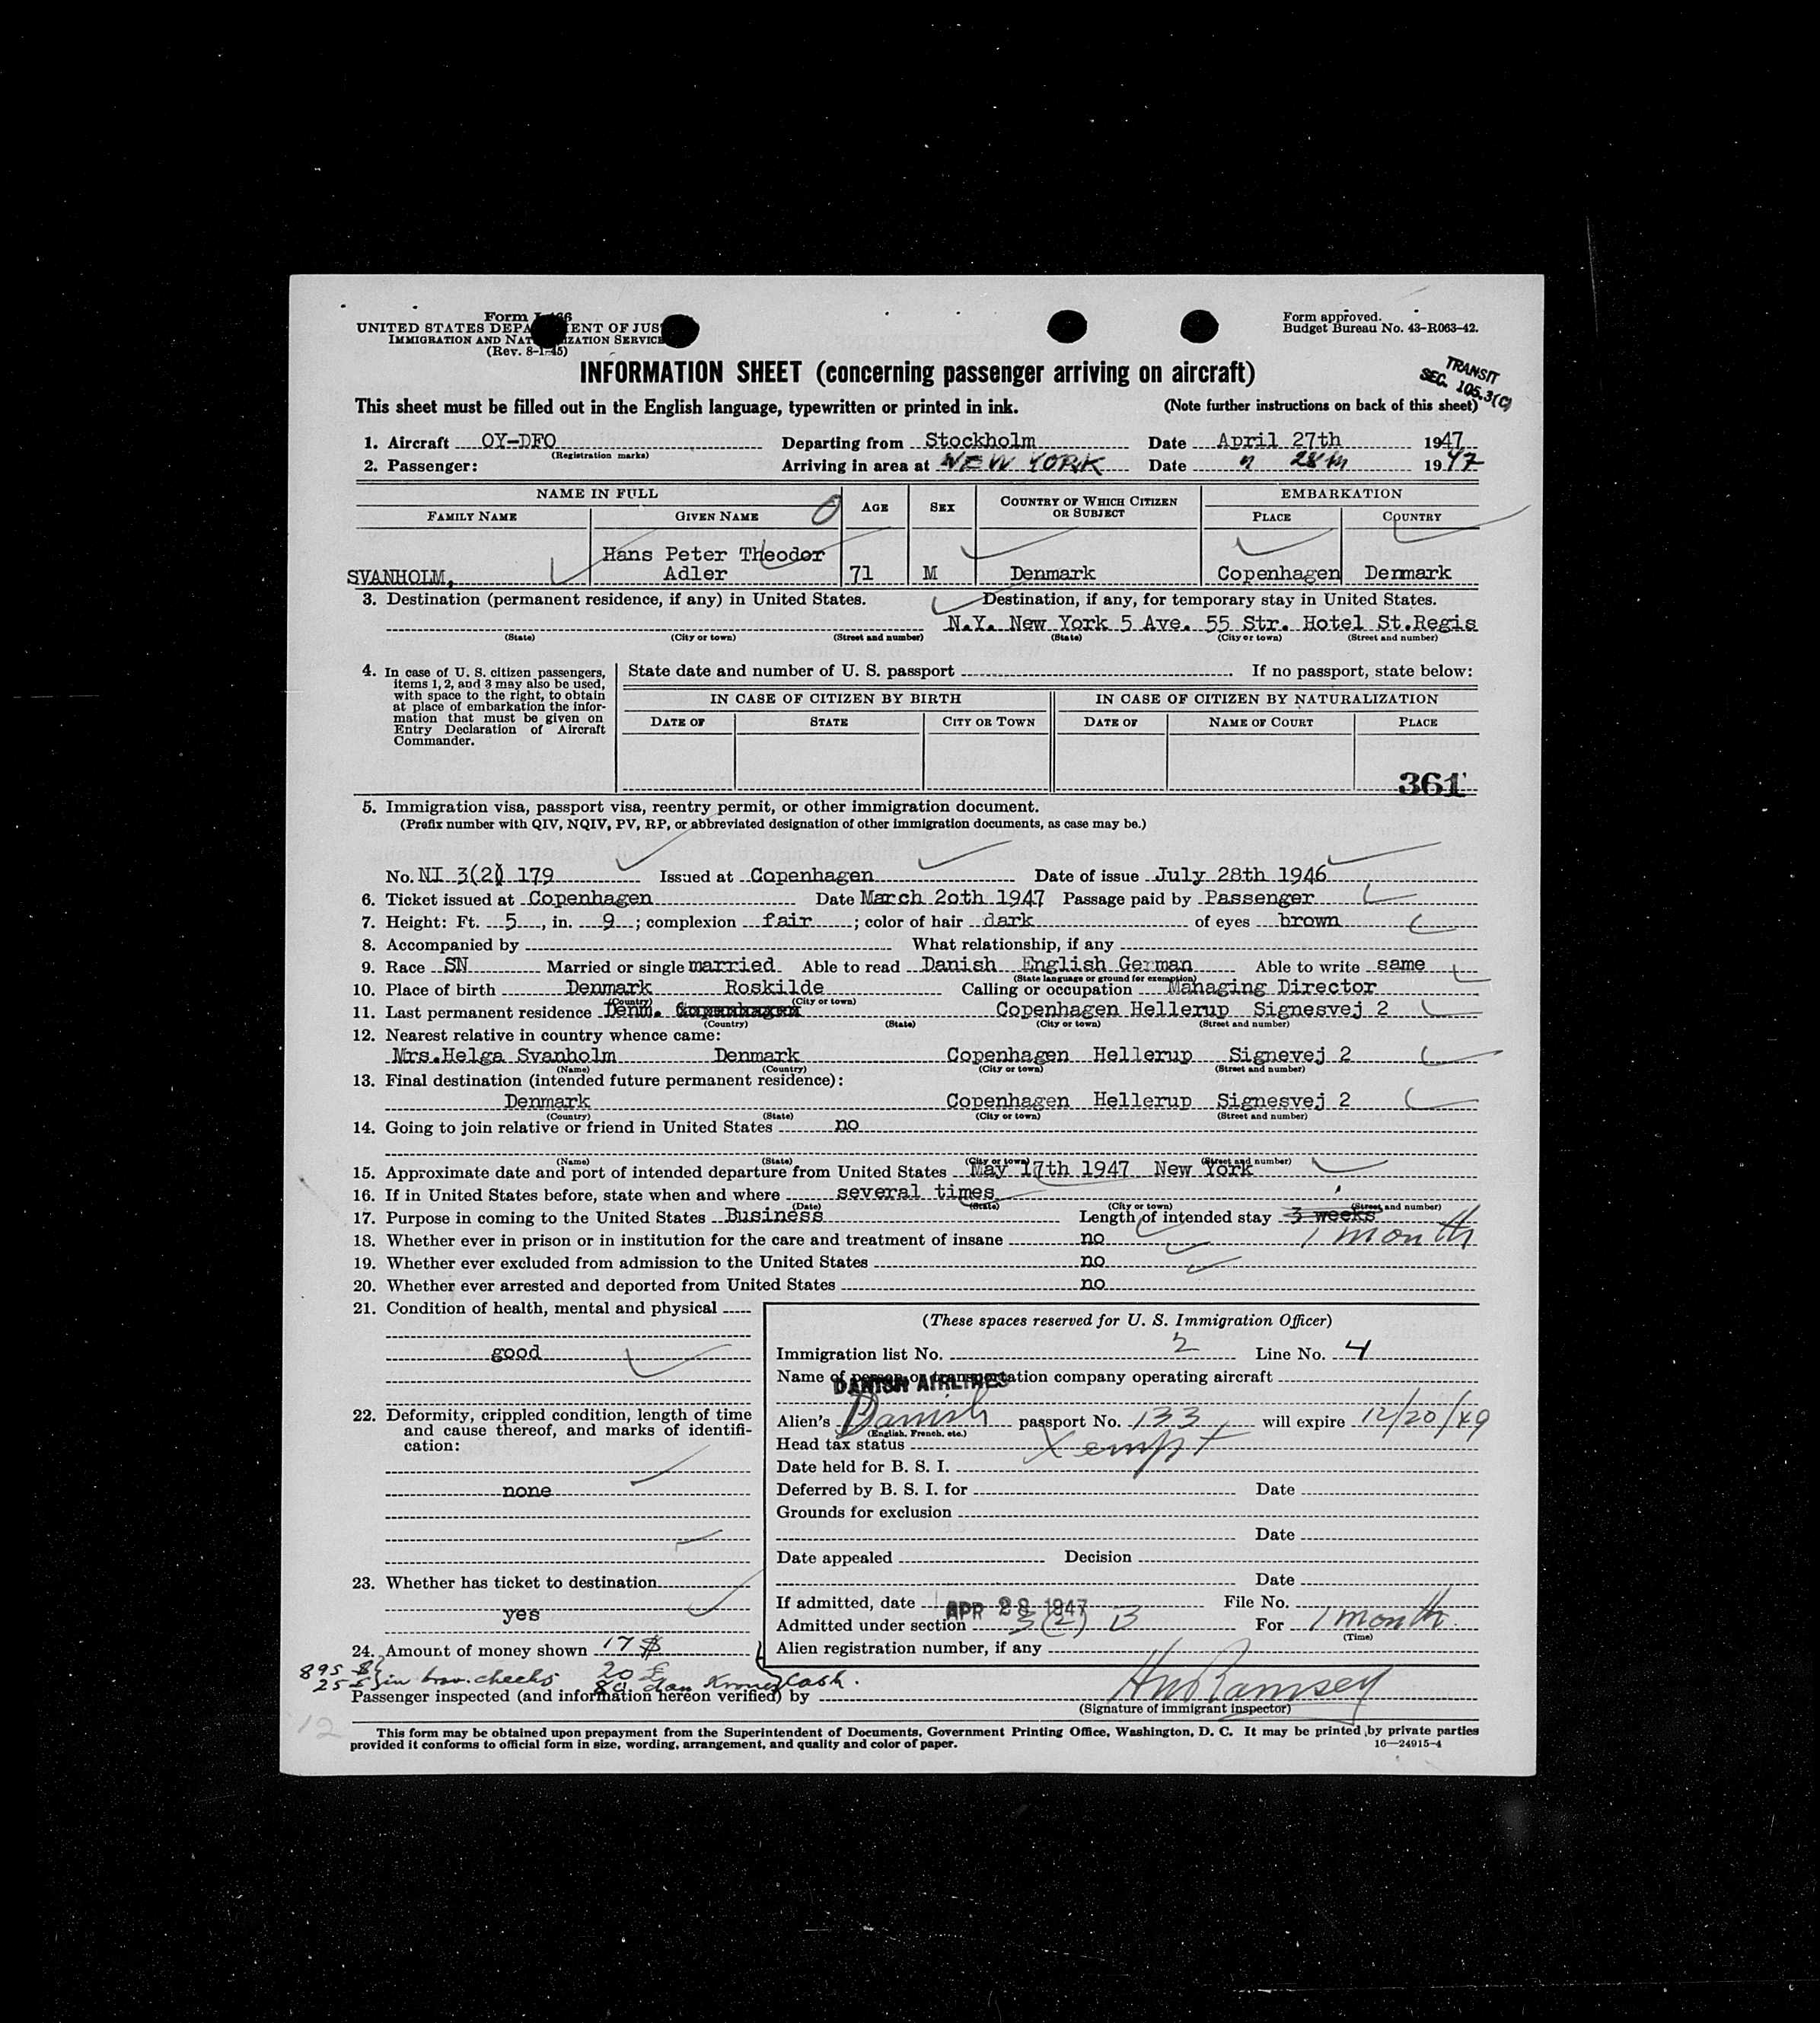 Form I-466
UNITED STATES DEPARTMENT OF JUSTICE
IMMIGRATION AND NATURALIZATION SERVICE
(Rev. 8-1-45)
Form approved.
Budget Bureau No. 43-R063-42.
INFORMATION SHEET (concerning passenger arriving on aircraft)
TRANSIT
SEC. 105.3(C)
This sheet must be filled out in the English language, typewritten or printed in ink. (Note further instructions on back of this sheet)
1. Aircraft OY-DFO Departing from Stockholm Date April 27th 1947
(Registration marks)
2. Passenger: Arriving in area at NEW YORK Date " 28th 1947
NAME IN FULL AGE SEX COUNTRY OF WHICH CITIZEN OR SUBJECT EMBARKATION
FAMILY NAME GIVEN NAME PLACE COUNTRY
Hans Peter Theodor
SVANHOLM, Adler 71 M Denmark Copenhagen Denmark
3. Destination (permanent residence, if any) in United States. Destination, if any, for temporary stay in United States.
N.Y. New York 5 Ave. 55 Str. Hotel St.Regis
(State) (City or town) (Street and number) (State) (City or town) (Street and number)
4. In case of U. S. citizen passengers, items 1, 2, and 3 may also be used, with space to the right, to obtain at place of embarkation the information that must be given on Entry Declaration of Aircraft Commander.
State date and number of U. S. passport If no passport, state below:
IN CASE OF CITIZEN BY BIRTH IN CASE OF CITIZEN BY NATURALIZATION
DATE OF STATE CITY OR TOWN DATE OF NAME OF COURT PLACE
361
5. Immigration visa, passport visa, reentry permit, or other immigration document.
(Prefix number with QIV, NQIV, PV, RP, or abbreviated designation of other immigration documents, as case may be.)
No. NI 3(2) 179 Issued at Copenhagen Date of issue July 28th 1946
6. Ticket issued at Copenhagen Date March 2oth 1947 Passage paid by Passenger
7. Height: Ft. 5, in. 9; complexion fair; color of hair dark of eyes brown
8. Accompanied by What relationship, if any
9. Race SN Married or single married. Able to read Danish English German Able to write same
(State language or ground for exemption)
10. Place of birth Denmark Roskilde Calling or occupation Managing Director
(Country) (City or town)
11. Last permanent residence Denm. Copenhagen Copenhagen Hellerup Signesvej 2
(Country) (State) (City or town) (Street and number)
12. Nearest relative in country whence came:
Mrs.Helga Svanholm Denmark Copenhagen Hellerup Signevej 2
(Name) (Country) (City or town) (Street and number)
13. Final destination (intended future permanent residence):
Denmark Copenhagen Hellerup Signesvej 2
(Country) (State) (City or town) (Street and number)
14. Going to join relative or friend in United States no
(Name) (State) (City or town) (Street and number)
15. Approximate date and port of intended departure from United States May 17th 1947 New York
16. If in United States before, state when and where several times
(Date) (State) (City or town) (Street and number)
17. Purpose in coming to the United States Business Length of intended stay 3 weeks
18. Whether ever in prison or in institution for the care and treatment of insane no 1 month
19. Whether ever excluded from admission to the United States no
20. Whether ever arrested and deported from United States no
21. Condition of health, mental and physical
good
22. Deformity, crippled condition, length of time and cause thereof, and marks of identification:
none
23. Whether has ticket to destination
yes
24. Amount of money shown 17 $
895 $ 20 £
25 £ in trav. checks 80 dan Kroner Cash.
(These spaces reserved for U. S. Immigration Officer)
Immigration list No. 2 Line No. 4
Name of person or transportation company operating aircraft
DANISH AIRLINES
Alien's Danish passport No. 133 will expire 12/20/49
(English, French, etc.)
Head tax status Xempt
Date held for B. S. I.
Deferred by B. S. I. for Date
Grounds for exclusion
Date
Date appealed Decision
Date
If admitted, date APR 28 1947 File No.
Admitted under section 3(2) B For 1 month
(Time)
Alien registration number, if any
Passenger inspected (and information hereon verified) by Ramsey
(Signature of immigrant inspector)
12
This form may be obtained upon prepayment from the Superintendent of Documents, Government Printing Office, Washington, D. C. It may be printed by private parties
provided it conforms to official form in size, wording, arrangement, and quality and color of paper. 16—24915-4